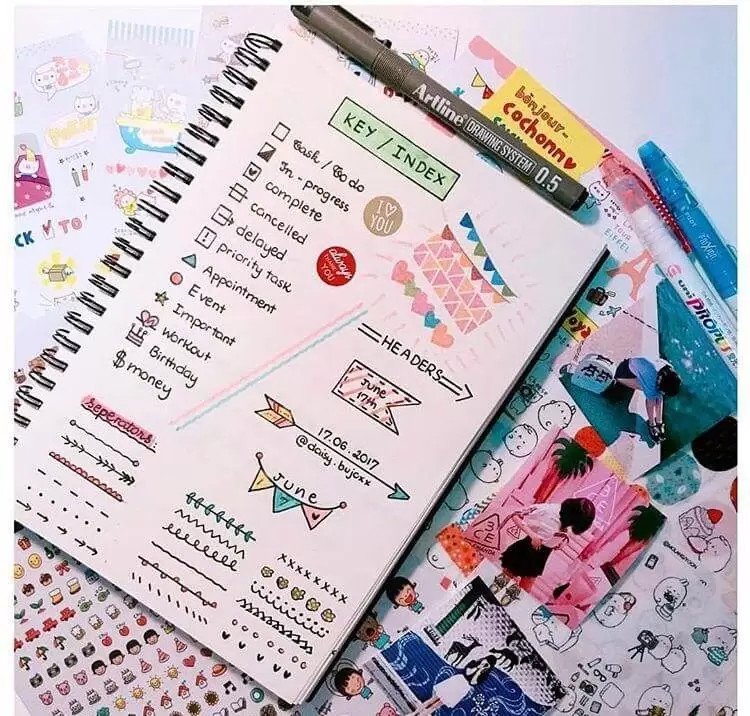 KEY / INDEX
Task / To do
In - progress
complete
cancelled
delayed
priority task
Appointment
Event
Important
workout
Birthday
$ money
I ♡ YOU
always THANK YOU
HEADERS
June 17th
17.06.2017
@daisy.bujoxx
June
seperators
Artline DRAWING SYSTEM 0.5
bonjour-
cochonn
EIFFEL
PILOT
uni PROPUS